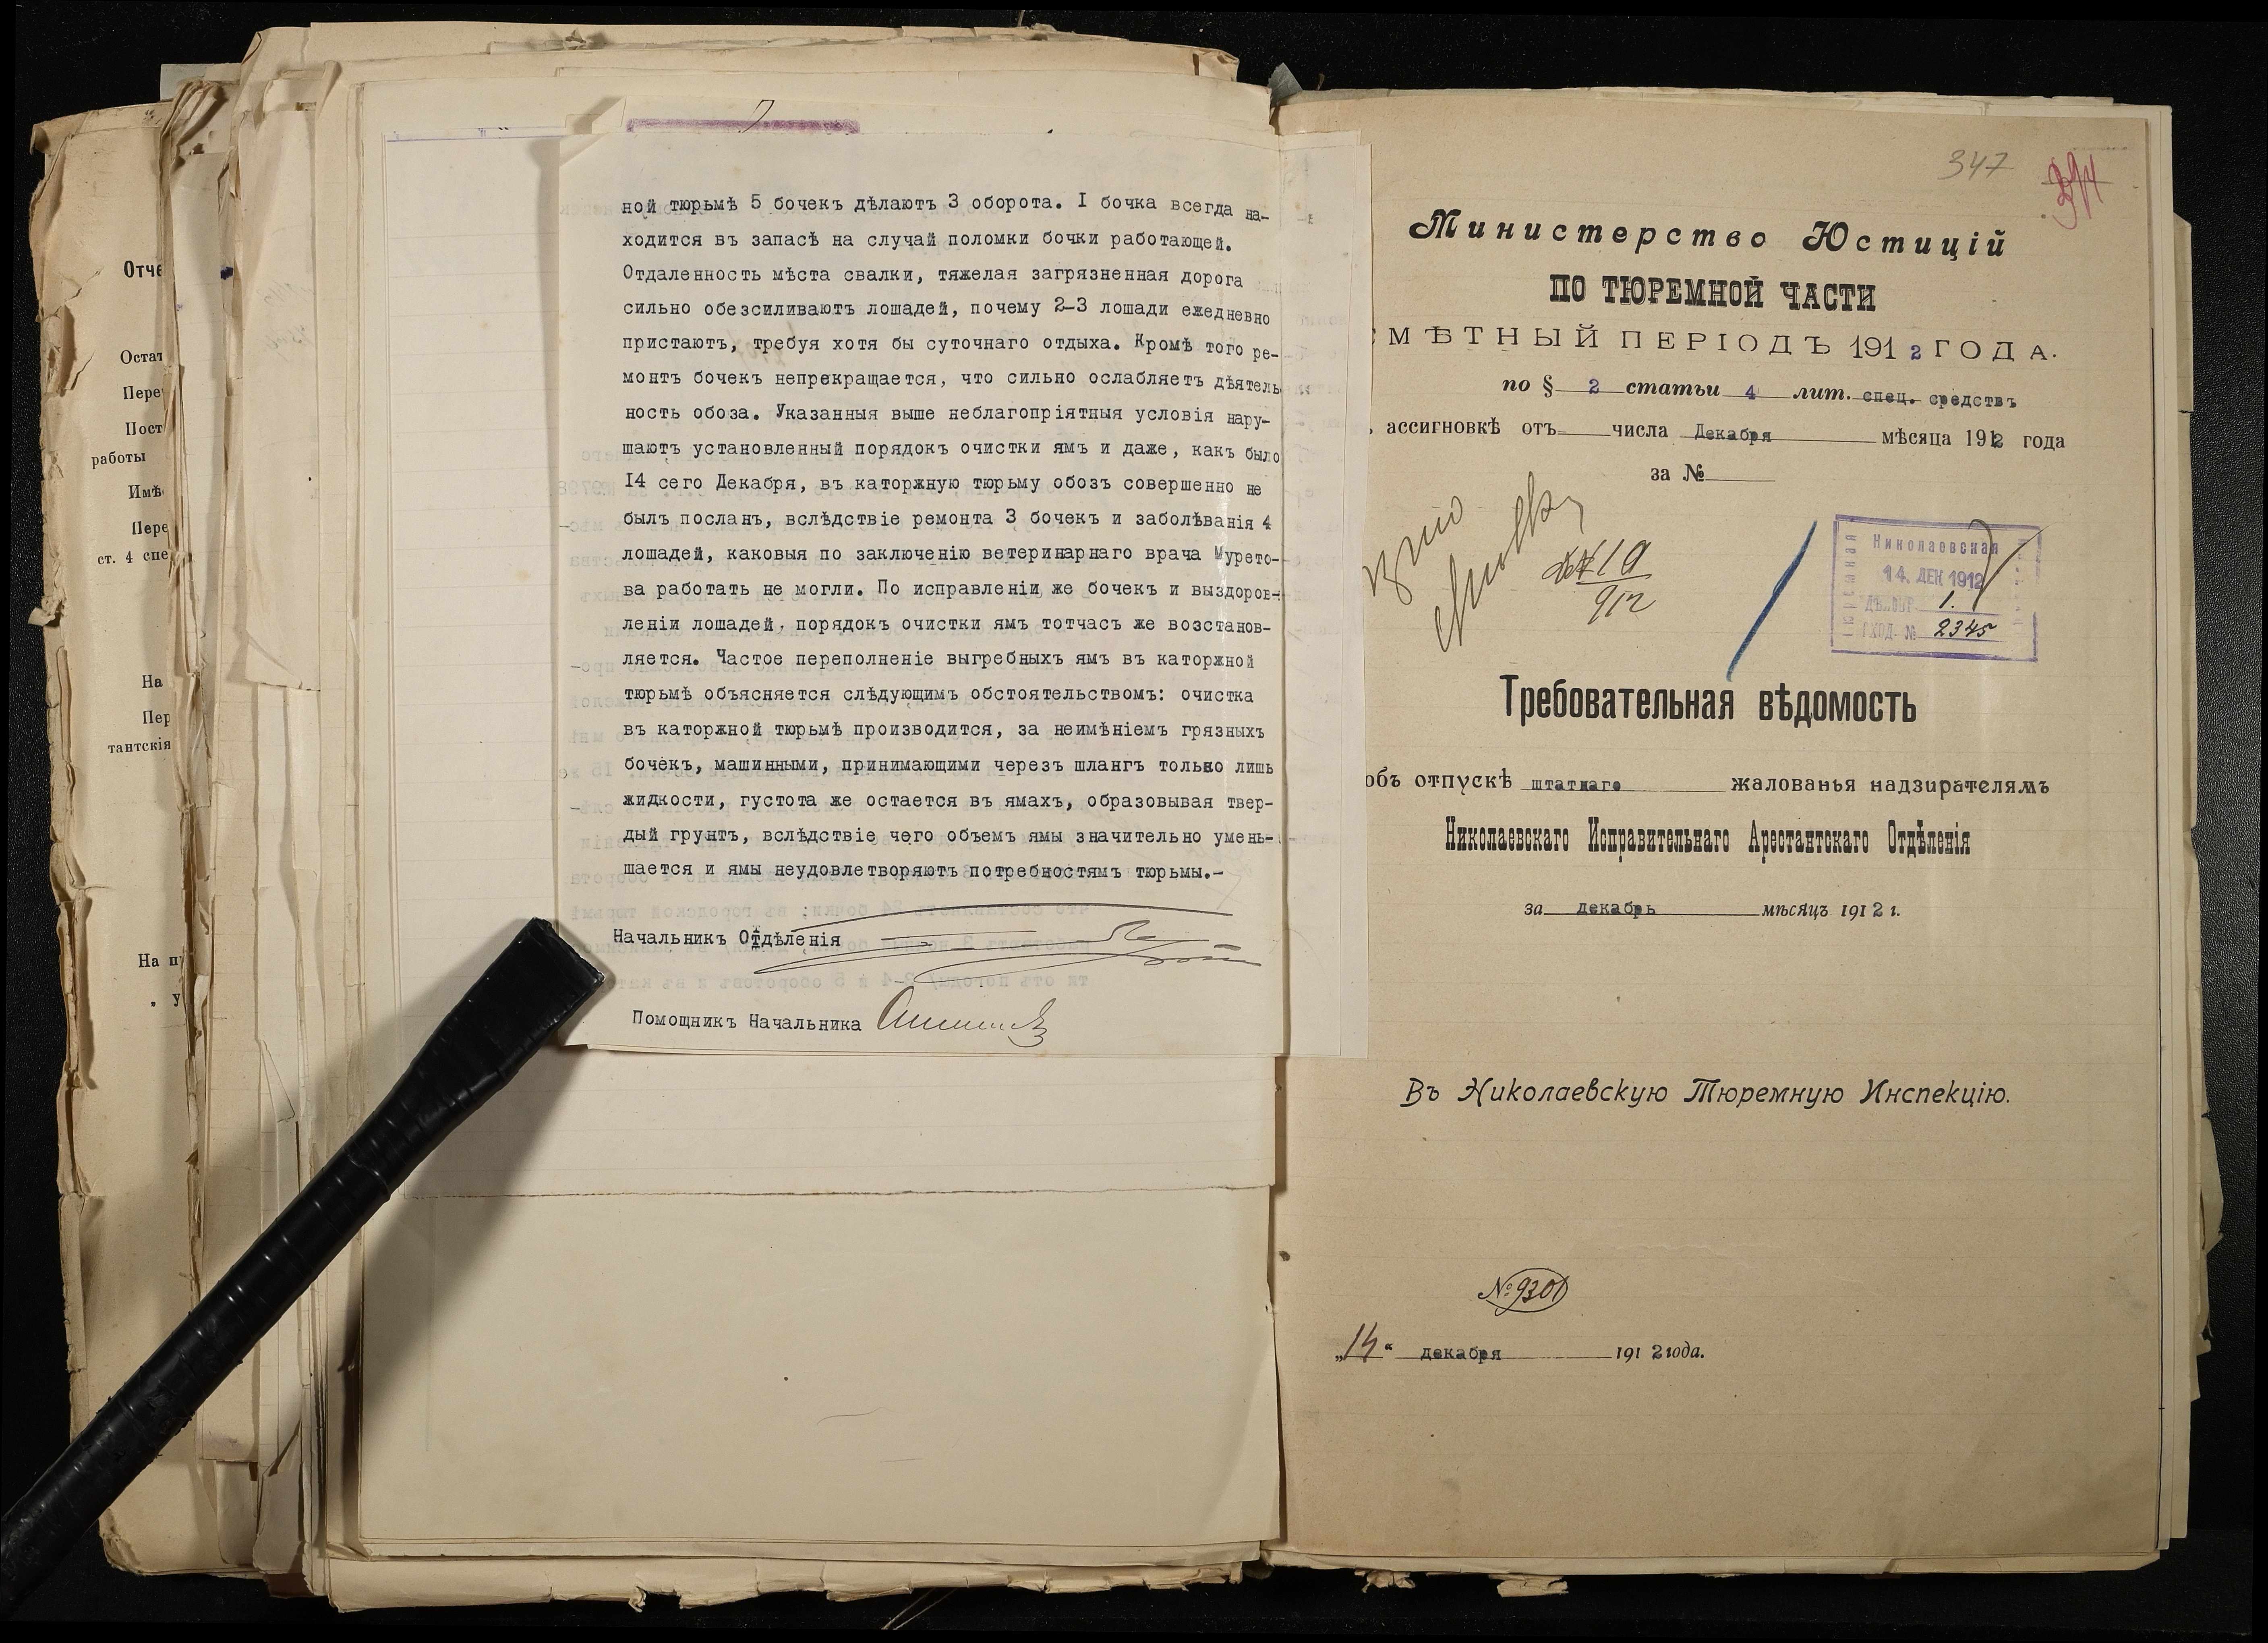 Отче
Остат
Пере
Пост
работы
Имѣ
Пере
ст. 4 спе
На
Пер
тантскія
На п
„ У
ной тюрьмѣ 5 бочекъ дѣлаютъ 3 оборота. I бочка всегда на-
ходится въ запасѣ на случай поломки бочки работающей.
Отдаленность мѣста свалки, тяжелая загрязненная дорога
сильно обезсиливаютъ лошадей, почему 2-3 лошади ежедневно
пристаютъ, требуя хотя бы суточнаго отдыха. Кромѣ того ре-
монтъ бочекъ непрекращается, что сильно ослабляетъ дѣятель
ность обоза. Указанныя выше неблагопріятныя условія нару-
шаютъ установленный порядокъ очистки ямъ и даже, какъ было
I4 сего Декабря, въ каторжную тюрьму обозъ совершенно не
былъ посланъ, вслѣдствіе ремонта 3 бочекъ и заболѣванія 4
лошадей, каковыя по заключенію ветеринарнаго врача Мурето-
ва работать не могли. По исправленіи же бочекъ и выздоров-
леніи лошадей, порядокъ очистки ямъ тотчасъ же возстанов-
ляется. Частое переполненіе выгребныхъ ямъ въ каторжной
тюрьмѣ объясняется слѣдующимъ обстоятельствомъ: очистка
въ каторжной тюрьмѣ производится, за неимѣніемъ грязныхъ
бочекъ, машинными, принимающими черезъ шлангъ только лишь
жидкости, густота же остается въ ямахъ, образовывая твер-
дый грунтъ, вслѣдствіе чего объемъ ямы значительно умень-
шается и ямы неудовлетворяютъ потребностямъ тюрьмы.-
Начальникъ Отдѣленія
Помощникъ Начальника
347
394
Министерство Юстиціи
ПО ТЮРЕМНОЙ ЧАСТИ
СМѢТНЫЙ ПЕРІОДЪ 1912 ГОДА.
по § 2 статьи 4 лит. спец. средствъ
ассигновкѣ отъ числа Декабря мѣсяца 1912 года
за №
19
912
Николаевская
14. ДЕК 1912
1.
ВХОД. № 2345
Требовательная вѣдомость
объ отпускѣ штатнаго жалованья надзирателямъ
Николаевскаго Исправительнаго Арестантскаго Отдѣленія
за декабрь мѣсяцъ 1912 г.
Въ Николаевскую Тюремную Инспекцію.
№ 9301
„14“ декабря 1912 года.